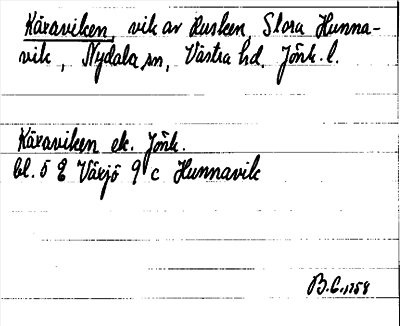 Käraviken, vik av Rusken, Stora Hunna-
vik, Nydala sn, Västra hd, Jönk. l.
Käraviken ek. Jönk.
bl. 5 E Växjö 9 c Hunnavik
B.C. 1958